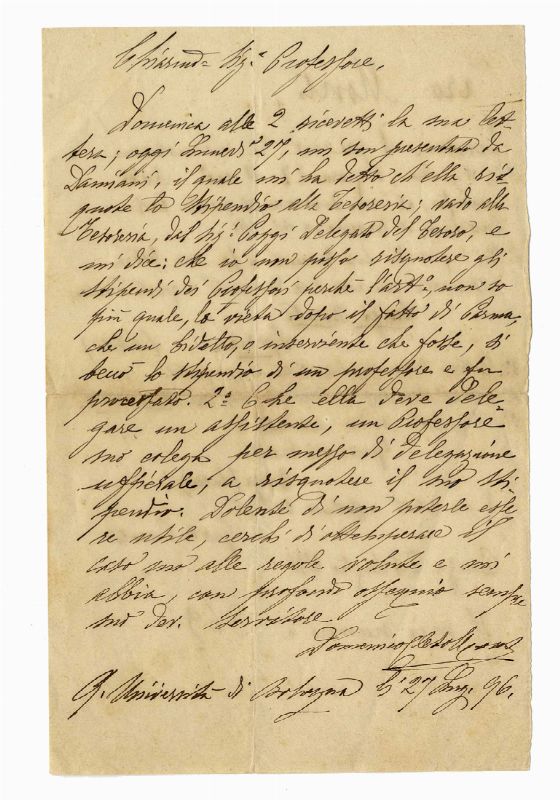 Chiarind= Sig.r Professore,
Domenica alle 2 ricevetti la sua let-
tera; oggi Lunerdì 27, mi son presentato da
Damiani, il quale mi ha detto ch'ella ris-
quote lo stipendio alla Tesoreria; vado alla
Tesoreria, dal Sig.r Poggi Delegato del Tesoro, e
mi dice: che io non posso risquotere gli
stipendi dei Professori perchè l'art.o, non so
più quale, lo vieta dopo il fatto di Parma,
che un bidello, o inserviente che fosse, si
beccò lo stipendio di un professore e fu
processato. 2.o Che ella deve dele-
gare un assistente, un Professore
suo colega per messo di delegazione
ufficiale; a risquotere il suo sti-
pendio. Dolente di non poterle esse-
re utile, cerchi d'ottemperare il
caso suo alle regole volute e mi
abbia, con profondo ossequio sempre
suo dev. servitore
Domenico
Università di Bologna li 27 96.